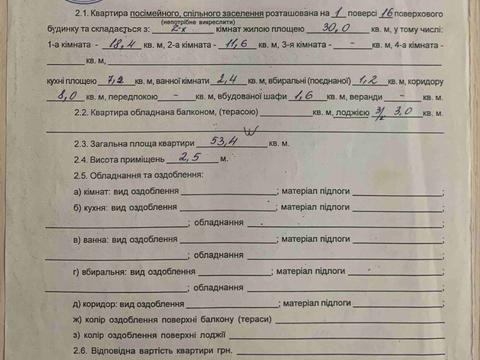 2.1. Квартира посімейного, спільного заселення розташована на 1 поверсі 16 поверхового
(непотрібне викреслити)
будинку та складається з 2-х кімнат жилою площею 30,0 кв. м, у тому числі:
1-а кімната - 18,4 кв. м, 2-а кімната - 11,6 кв. м, 3-я кімната - – кв. м, 4-а кімната -
кв. м,
кухні площею 7,2 кв. м, ванної кімнати 2,4 кв. м, вбиральні (поєднаної) 1,2 кв. м, коридору
8,0 кв. м, передпокою – кв. м, вбудованої шафи 1,6 кв. м, веранди – кв. м.
2.2. Квартира обладнана балконом, (терасою) кв. м, лоджією 3,0
кв. м.
2.3. Загальна площа квартири 53,4 кв. м.
2.4. Висота приміщень 2,5 м.
2.5. Обладнання та оздоблення:
а) кімнат: вид оздоблення ; матеріал підлоги ;
б) кухня: вид оздоблення ; матеріал підлоги
; обладнання ;
в) ванна: вид оздоблення ; матеріал підлоги
; обладнання ;
г) вбиральня: вид оздоблення ; матеріал підлоги
; обладнання ;
д) коридор: вид оздоблення ; матеріал підлоги ;
ж) колір оздоблення поверхні балкону (тераси) ;
з) колір оздоблення поверхні лоджії
2.6. Відповідна вартість квартири грн.